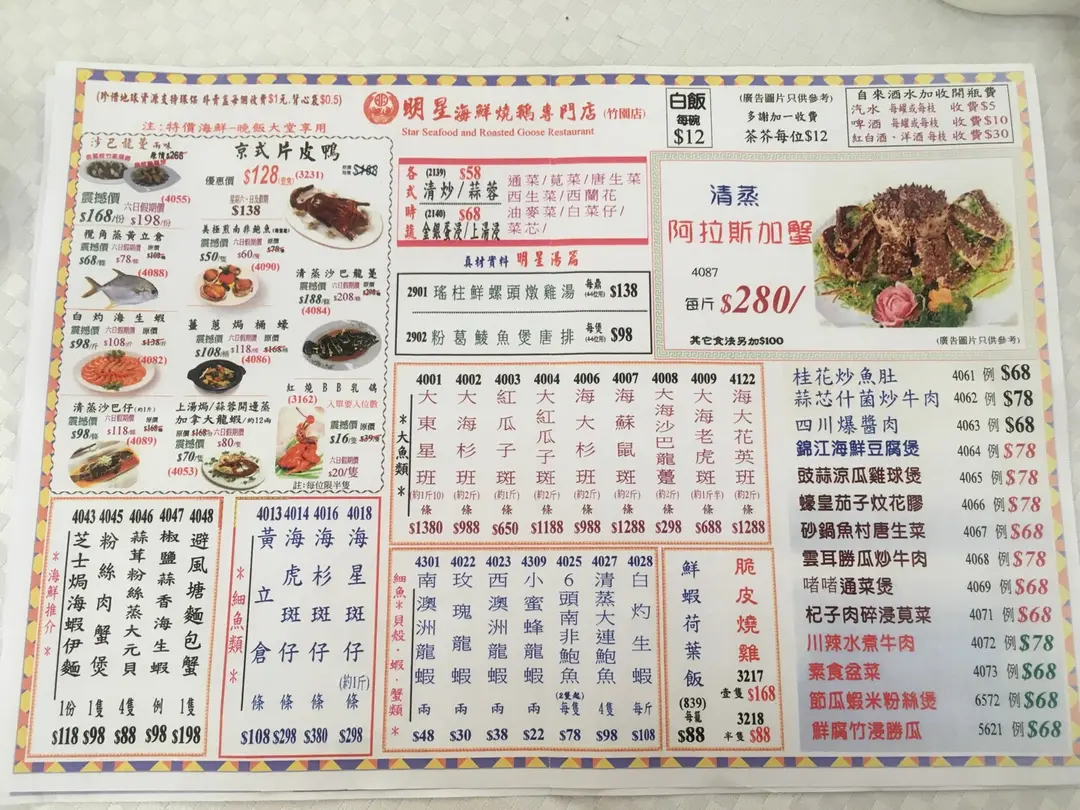 (珍惜地球資源支持環保 外賣盒每個收費$1元.背心袋$0.5)
注:特價海鮮-晚飯大堂享用
明星海鮮燒鵝專門店(竹園店)
Star Seafood and Roasted Goose Restaurant
白飯
每碗
$12
(廣告圖片只供參考)
多謝加一收費
茶芥每位$12
自來酒水加收開瓶費
汽水 每罐或每枝 收費$5
啤酒 每罐或每枝 收費$10
紅白酒、洋酒 每枝 收費$30
沙巴龍躉 兩味
原價$268
震撼價
$168/份
六日假期價
$198/份
(4055)
京式片皮鴨
優惠價 $128 (3231)
$138
欖角蒸黃立倉
震撼價 六日假期價 原價
$68/條 $78/條 $108/條
(4088)
美極煎南非鮑魚
震撼價 六日假期價 原價
$50/隻 $60/隻
(4090)
清蒸沙巴龍躉
震撼價 六日假期價 原價
$188/條 $208/條
(4084)
白灼海生蝦
震撼價 六日假期價 原價
$98/斤 $108/斤 $138/斤
(4082)
薑蔥焗桶蠔
震撼價 六日假期價 原價
$108/例 $118/例 $168/例
(4086)
清蒸沙巴仔(約1斤)
震撼價 六日假期價 原價
$98/條 $118/條 $168/條
(4089)
上湯焗/蒜蓉開邊蒸
加拿大龍蝦/約12兩
震撼價 原價$168/隻 六日假期價
$70/隻 $80/隻
(4053)
紅燒BB乳鴿
(3162) 入單要入位數
震撼價 原價
$16/隻 $39/隻
六日假期價
$20/隻
註:每位限半隻
各式時蔬
(2139) $58
清炒/蒜蓉
(2140) $68
金銀蛋浸/上湯浸
通菜/莧菜/唐生菜
西生菜/西蘭花
油麥菜/白菜仔/
菜芯/
真材實料 明星湯篇
2901 瑤柱鮮螺頭燉雞湯 每鼎 (44位用) $138
2902 粉葛鯪魚煲唐排 每煲 (44位用) $98
清蒸
阿拉斯加蟹
4087
每斤 $280/
其它食法另加$100
(廣告圖片只供參考)
*大魚類*
4001 大東星班 (約1斤10) 條 $1380
4002 大海杉班 (約2斤) 條 $988
4003 紅瓜子斑 (約1斤) 條 $650
4004 大紅瓜子班 (約2斤) 條 $1188
4006 海大杉班 (約2斤) 條 $988
4007 海蘇鼠斑 (約2斤) 條 $1288
4008 大海沙巴龍躉 (約2斤) 條 $298
4009 大海老虎斑 (約1斤半) 條 $688
4122 海大花英班 (約2斤) 條 $1288
桂花炒魚肚 4061 例 $68
蒜芯什菌炒牛肉 4062 例 $78
四川爆醬肉 4063 例 $68
錦江海鮮豆腐煲 4064 例 $78
豉蒜涼瓜雞球煲 4065 例 $78
蠔皇茄子炆花膠 4066 例 $78
砂鍋魚村唐生菜 4067 例 $68
雲耳勝瓜炒牛肉 4068 例 $78
啫啫通菜煲 4069 例 $68
杞子肉碎浸莧菜 4071 例 $68
川辣水煮牛肉 4072 例 $78
素食盆菜 4073 例 $68
節瓜蝦米粉絲煲 6572 例 $68
鮮腐竹浸勝瓜 5621 例 $68
*海鮮推介*
4043 芝士焗海蝦伊麵 1份 $118
4045 粉絲肉蟹煲 1隻 $98
4046 蒜茸粉絲蒸大元貝 4隻 $88
4047 椒鹽蒜香海生蝦 例 $98
4048 避風塘麵包蟹 1隻 $198
*細魚類*
4013 黃立倉 條 $108
4014 海虎斑仔 條 $298
4016 海杉斑仔 條 $380
4018 海星斑仔 (約1斤) 條 $298
細魚*貝殼·蝦·蟹類*
4301 南澳洲龍蝦 兩 $48
4022 玫瑰龍蝦 兩 $30
4023 西澳洲龍蝦 兩 $38
4309 小蜜蜂龍蝦 兩 $22
4025 6頭南非鮑魚 (2隻起) 每隻 $78
4027 清蒸大連鮑魚 4隻 $98
4028 白灼生蝦 每斤 $108
鮮蝦荷葉飯
(839)
每籠
$88
脆皮燒雞
3217
壹隻 $168
3218
半隻 $88